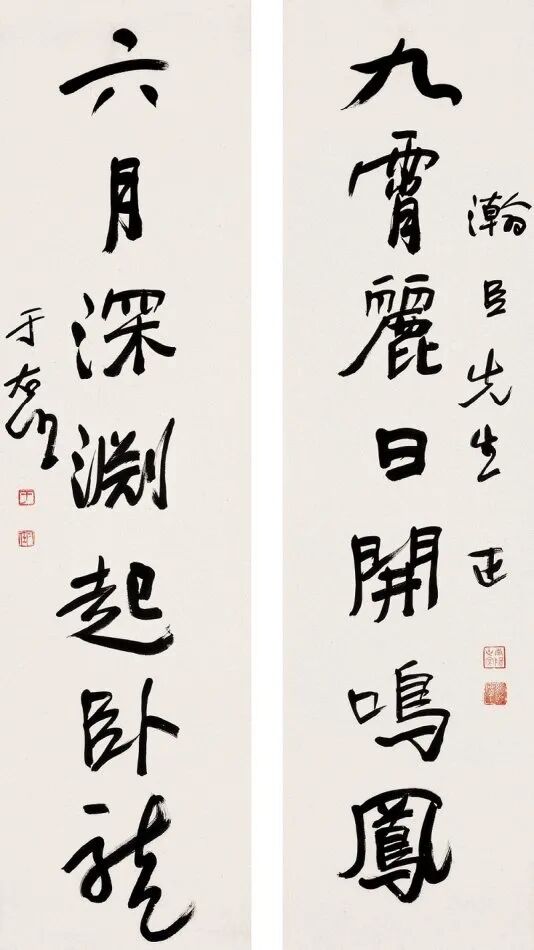 瀚臣先生正
九霄麗日開鳴鳳
六月深淵起臥龍
于右任